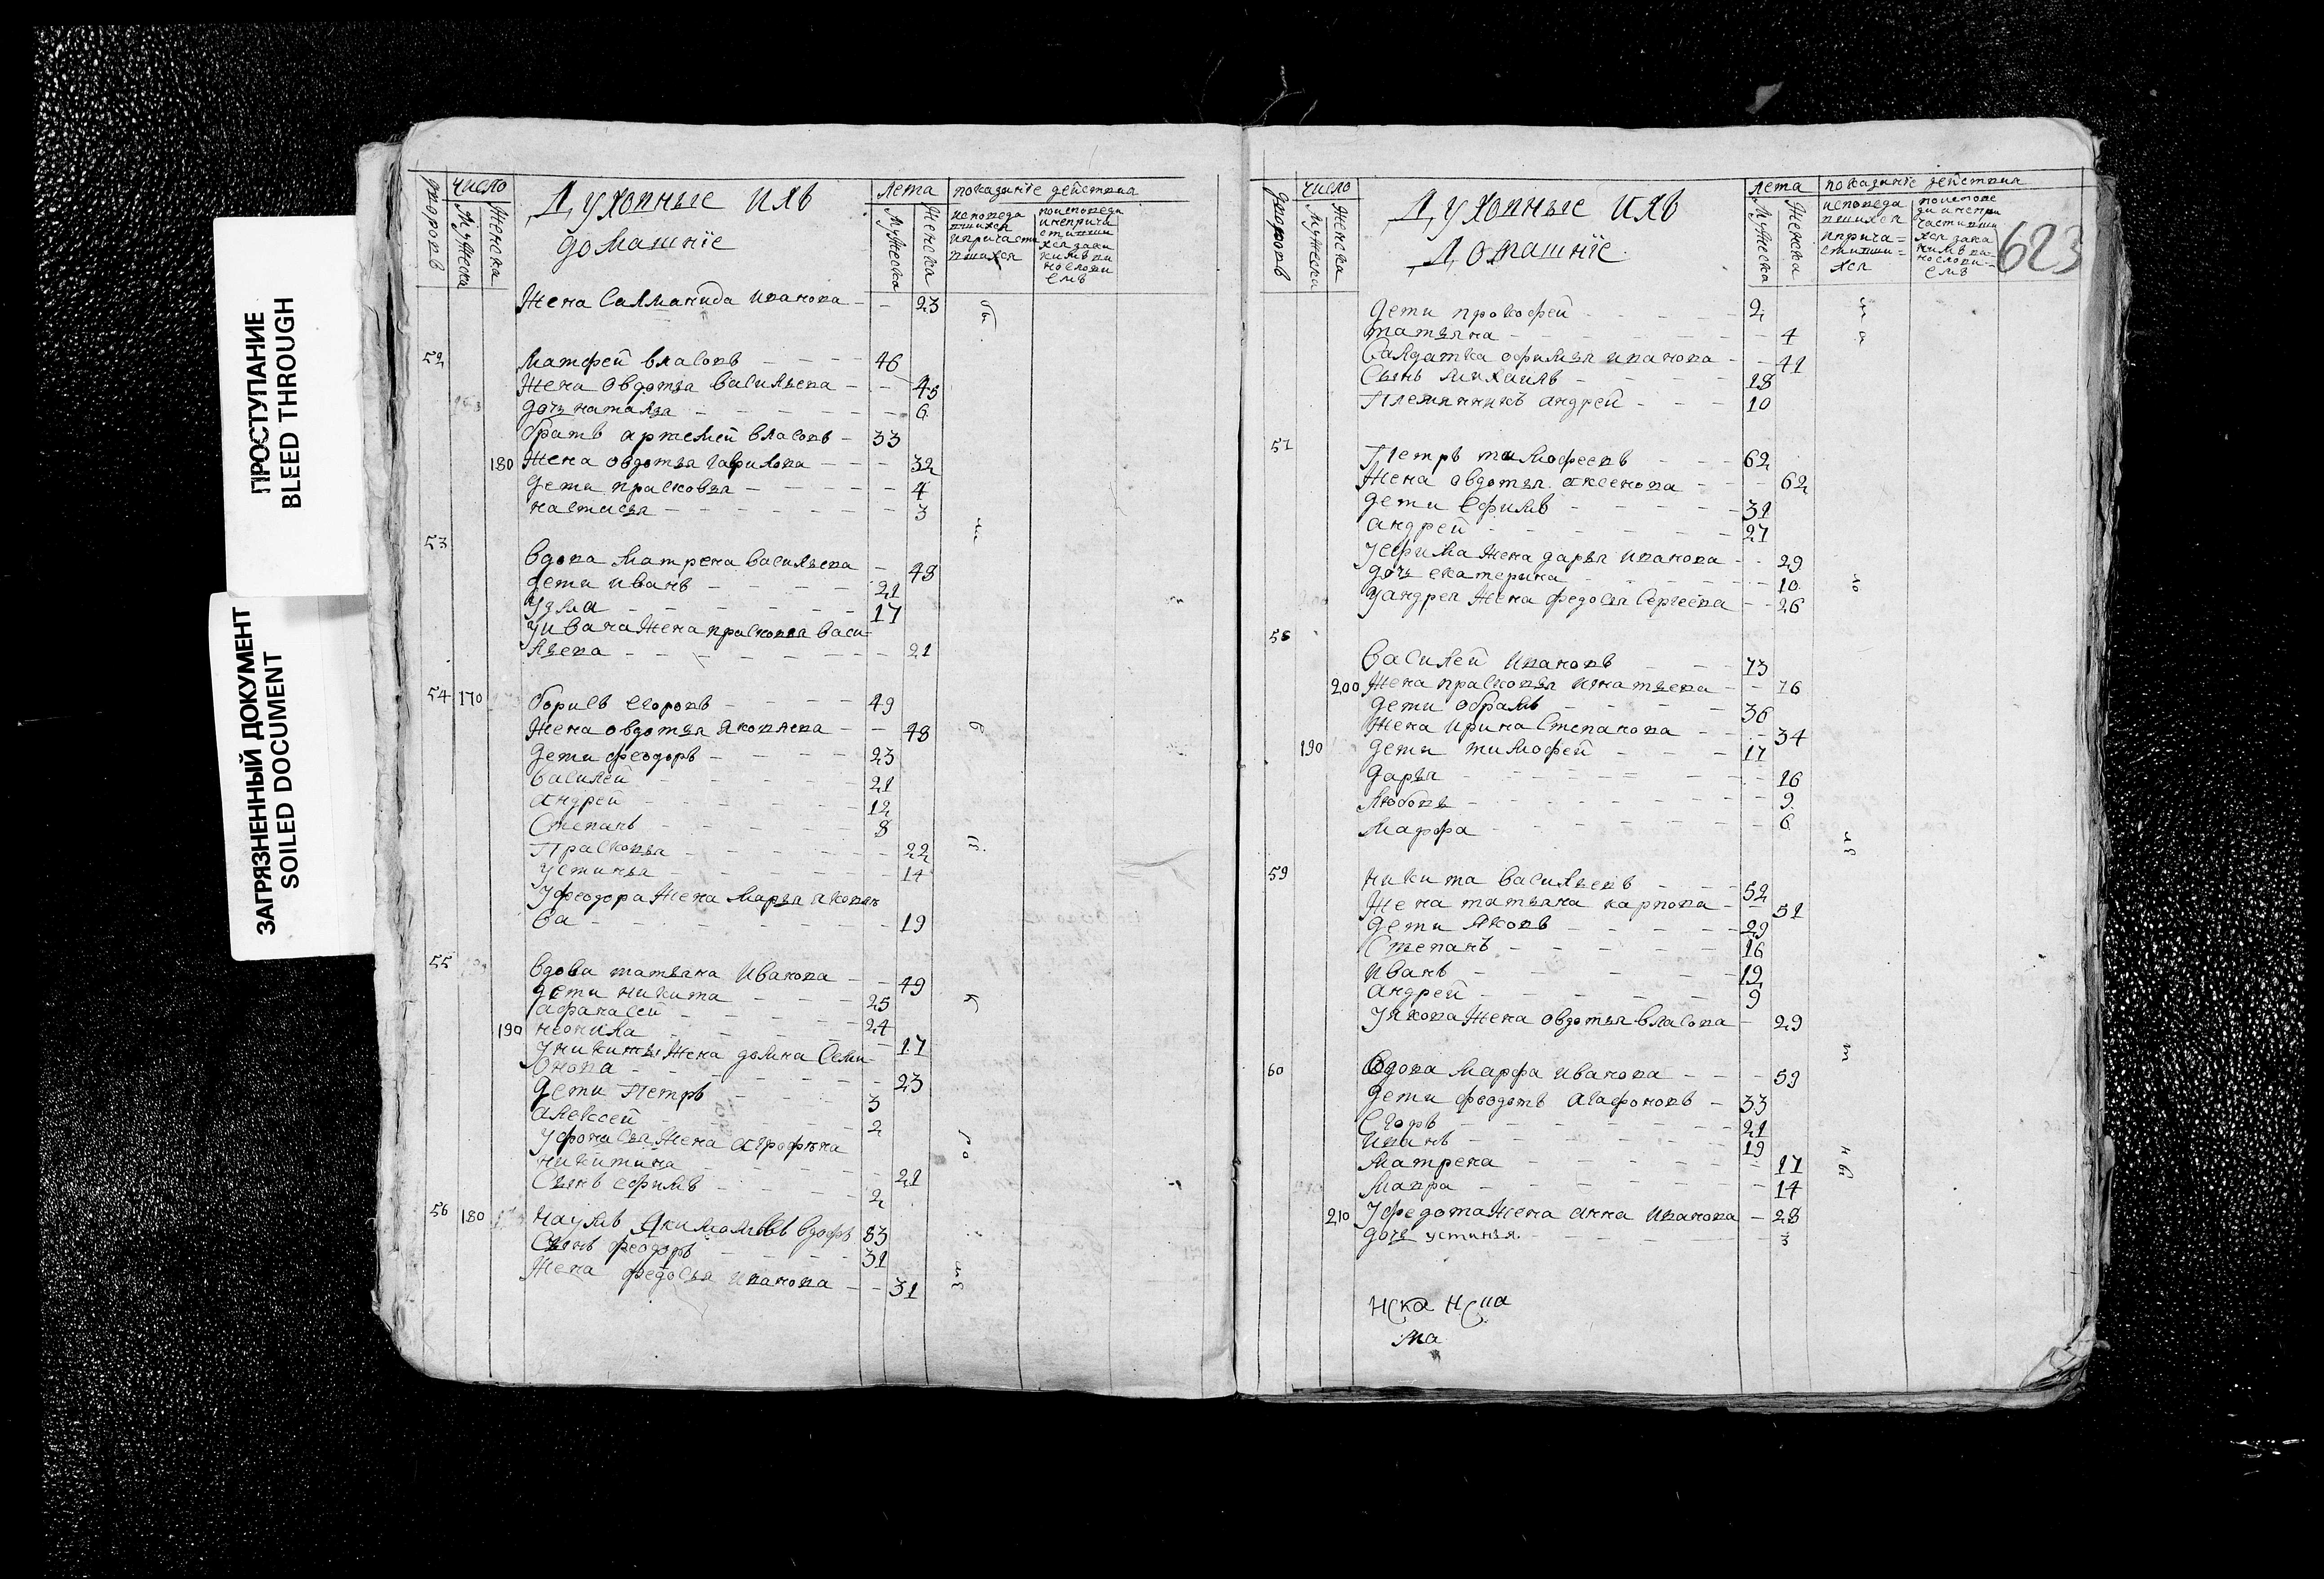 ПРОСТУПАНИЕ
BLEED THROUGH
ЗАГРЯЗНЕННЫЙ ДОКУМЕНТ
SOILED DOCUMENT
дворовъ
число
Мужеска
Женска
Духовные ихъ
домашнїе
лета
Мужеска
Женска
показанїе действия
исповеда
вшихся
ипричасти
вшихся
Жена Саламанида Иванова - - 23
52 Матфей Власовъ - - - 46
Жена Овдотья Васильева - - - 45
дочь наталья - - - 6
братъ артемей Власовъ - 33
180 Жена овдотья Гаврилова - - - 32
дети прасковья - - - 4
настасья - - - 3
53
Вдова Матрена Васильева - 48
дети Иванъ - - - 21
17
У Ивана Жена прасковья Васи
льева - - - 21
54 170 борисъ егоровъ - - - 49
Жена овдотья Яковлева - - 48
дети феодоръ - - - 23
Василей - - - 21
андрей - - - 12
Степанъ - - - 8
Прасковья - - - 22
устинья - - - 14
У феодора Жена Марья яковле
ва - - - 19
55 Вдова татьяна Иванова - - 49
дети никита - - - 25
афанасей - - - 24
190 неонила - - - 17
У никиты Жена домна Семи
онова - - - 23
дети Петръ - - - 3
алексей - - - 2
Жена аграфена
никитина - - - 21
Сынъ ефимъ - - - 2
56 180 Наумъ Якимовъ вдовъ 83
Сынъ феодоръ - - - 31
Жена федосья Иванова - - 31
дворовъ
число
Мужеска
Женска
Духовные ихъ
Домашнїе
лета
Мужеска
Женска
показанїе действия
исповеда
вшихся
иприча=
стивши=
хся
623
дети прокофей - - - 2
татьяна - - - 4
Салдатка офимья иванова - - 41
Сынъ михаилъ - - - 18
Племянникъ андрей - - - 10
57
Петръ тимофеевъ - - - 62
Жена овдотья аксенова - - - 62
дети Ефимъ - - - 31
андрей - - - 27
У ефима Жена дарья Иванова - - 29
дочь екатерина - - - 10
У андрея Жена федосья Сергеева - - 26
58
Василей Ивановъ - - - 73
200 Жена прасковья Игнатьева - - 76
дети - - - 36
Жена Ирина Степанова - - - 34
190 дети тимофей - - - 17
дарья - - - 16
любовь - - - 9
Марфа - - - 6
59 никита Васильевъ - - - 52
Жена татьяна карпова - - 51
дети Яковъ - - - 29
Степанъ - - - 16
Иванъ - - - 12
андрей - - - 9
У якова Жена овдотья власова - 29
60 Вдова Марфа Иванова - - - 59
дети феодотъ агафоновъ - 33
Егоръ - - - 21
Иванъ - - - 19
Матрена - - - 17
Мавра - - - 14
210 У федота Жена анна Иванова - 28
дочь устинья - - - 3